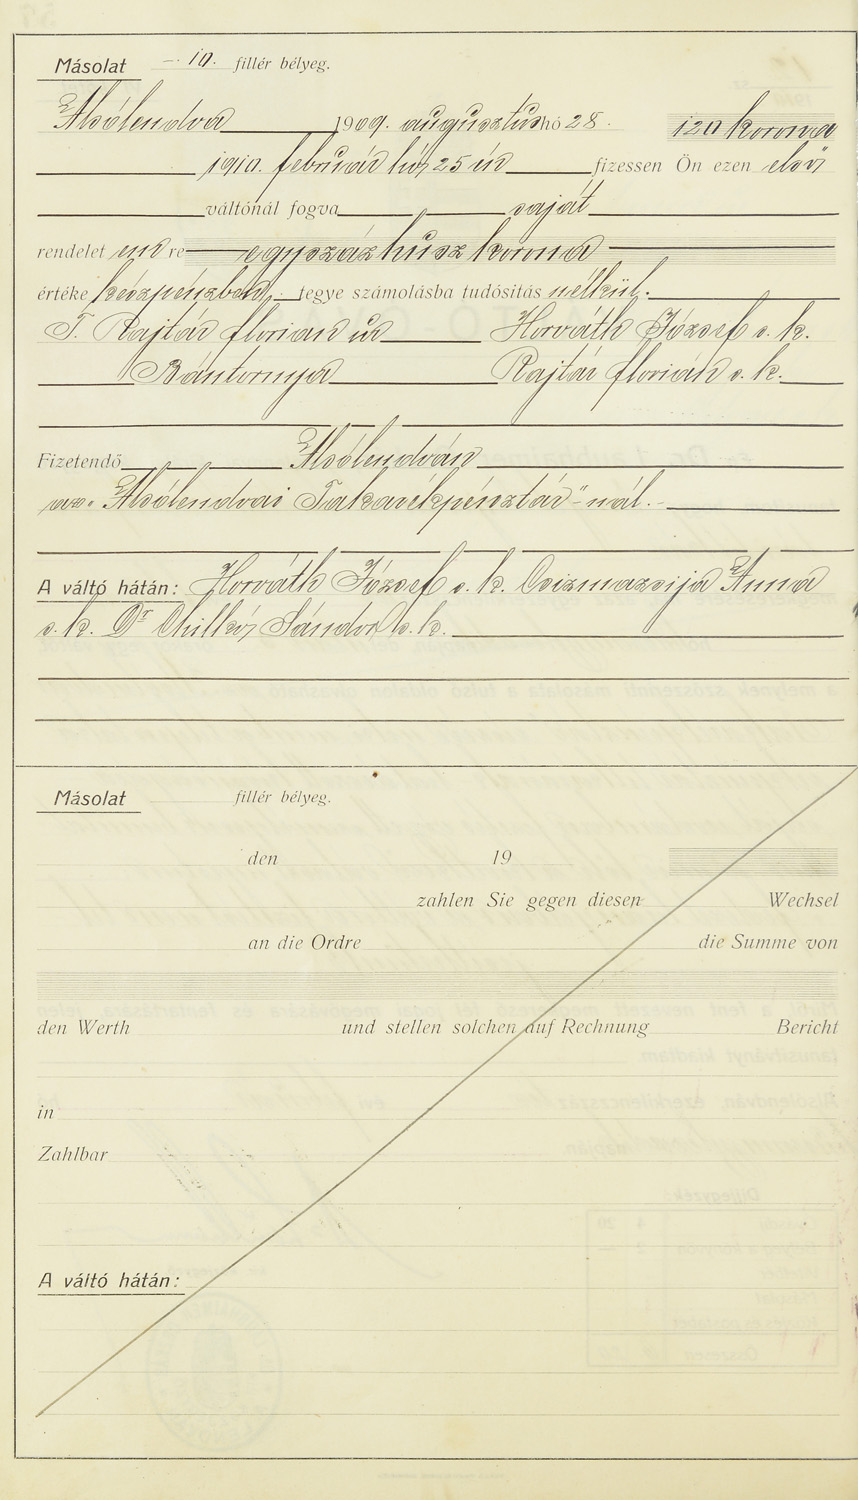 Másolat — 10. fillér bélyeg.
Alsólendva 1909. augusztus hó 28. 120 korona
1910. február hó 25 én fizessen Ön ezen első
váltónál fogva saját
rendelet em re egyszázhúsz korona
értéke készpénzben, tegye számolásba tudósitás nélkül.
T. Rajtár flórián úr Horváth József s. k.
Bántornya Rajtár flórián s. k.
Fizetendő Alsólendván
az „Alsólendvai Takarékpénztár"-nál.-
A váltó hátán: Horváth József s. k. Csizmazija Anna
s. k. Dr Sándor s. k.
Másolat fillér bélyeg.
den 19
zahlen Sie gegen diesen Wechsel
an die Ordre die Summe von
den Werth und stellen solchen auf Rechnung Bericht
in
Zahlbar
A váltó hátán: